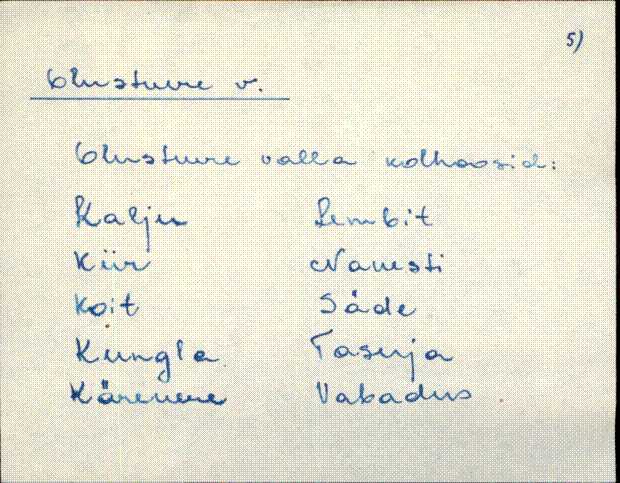 5)
Olustvere v.
Olustvere valla kolhoosid:
Kalju Lembit
Kiir Navesti
Koit Säde
Kungla Tasuja
Kärevere Vabadus